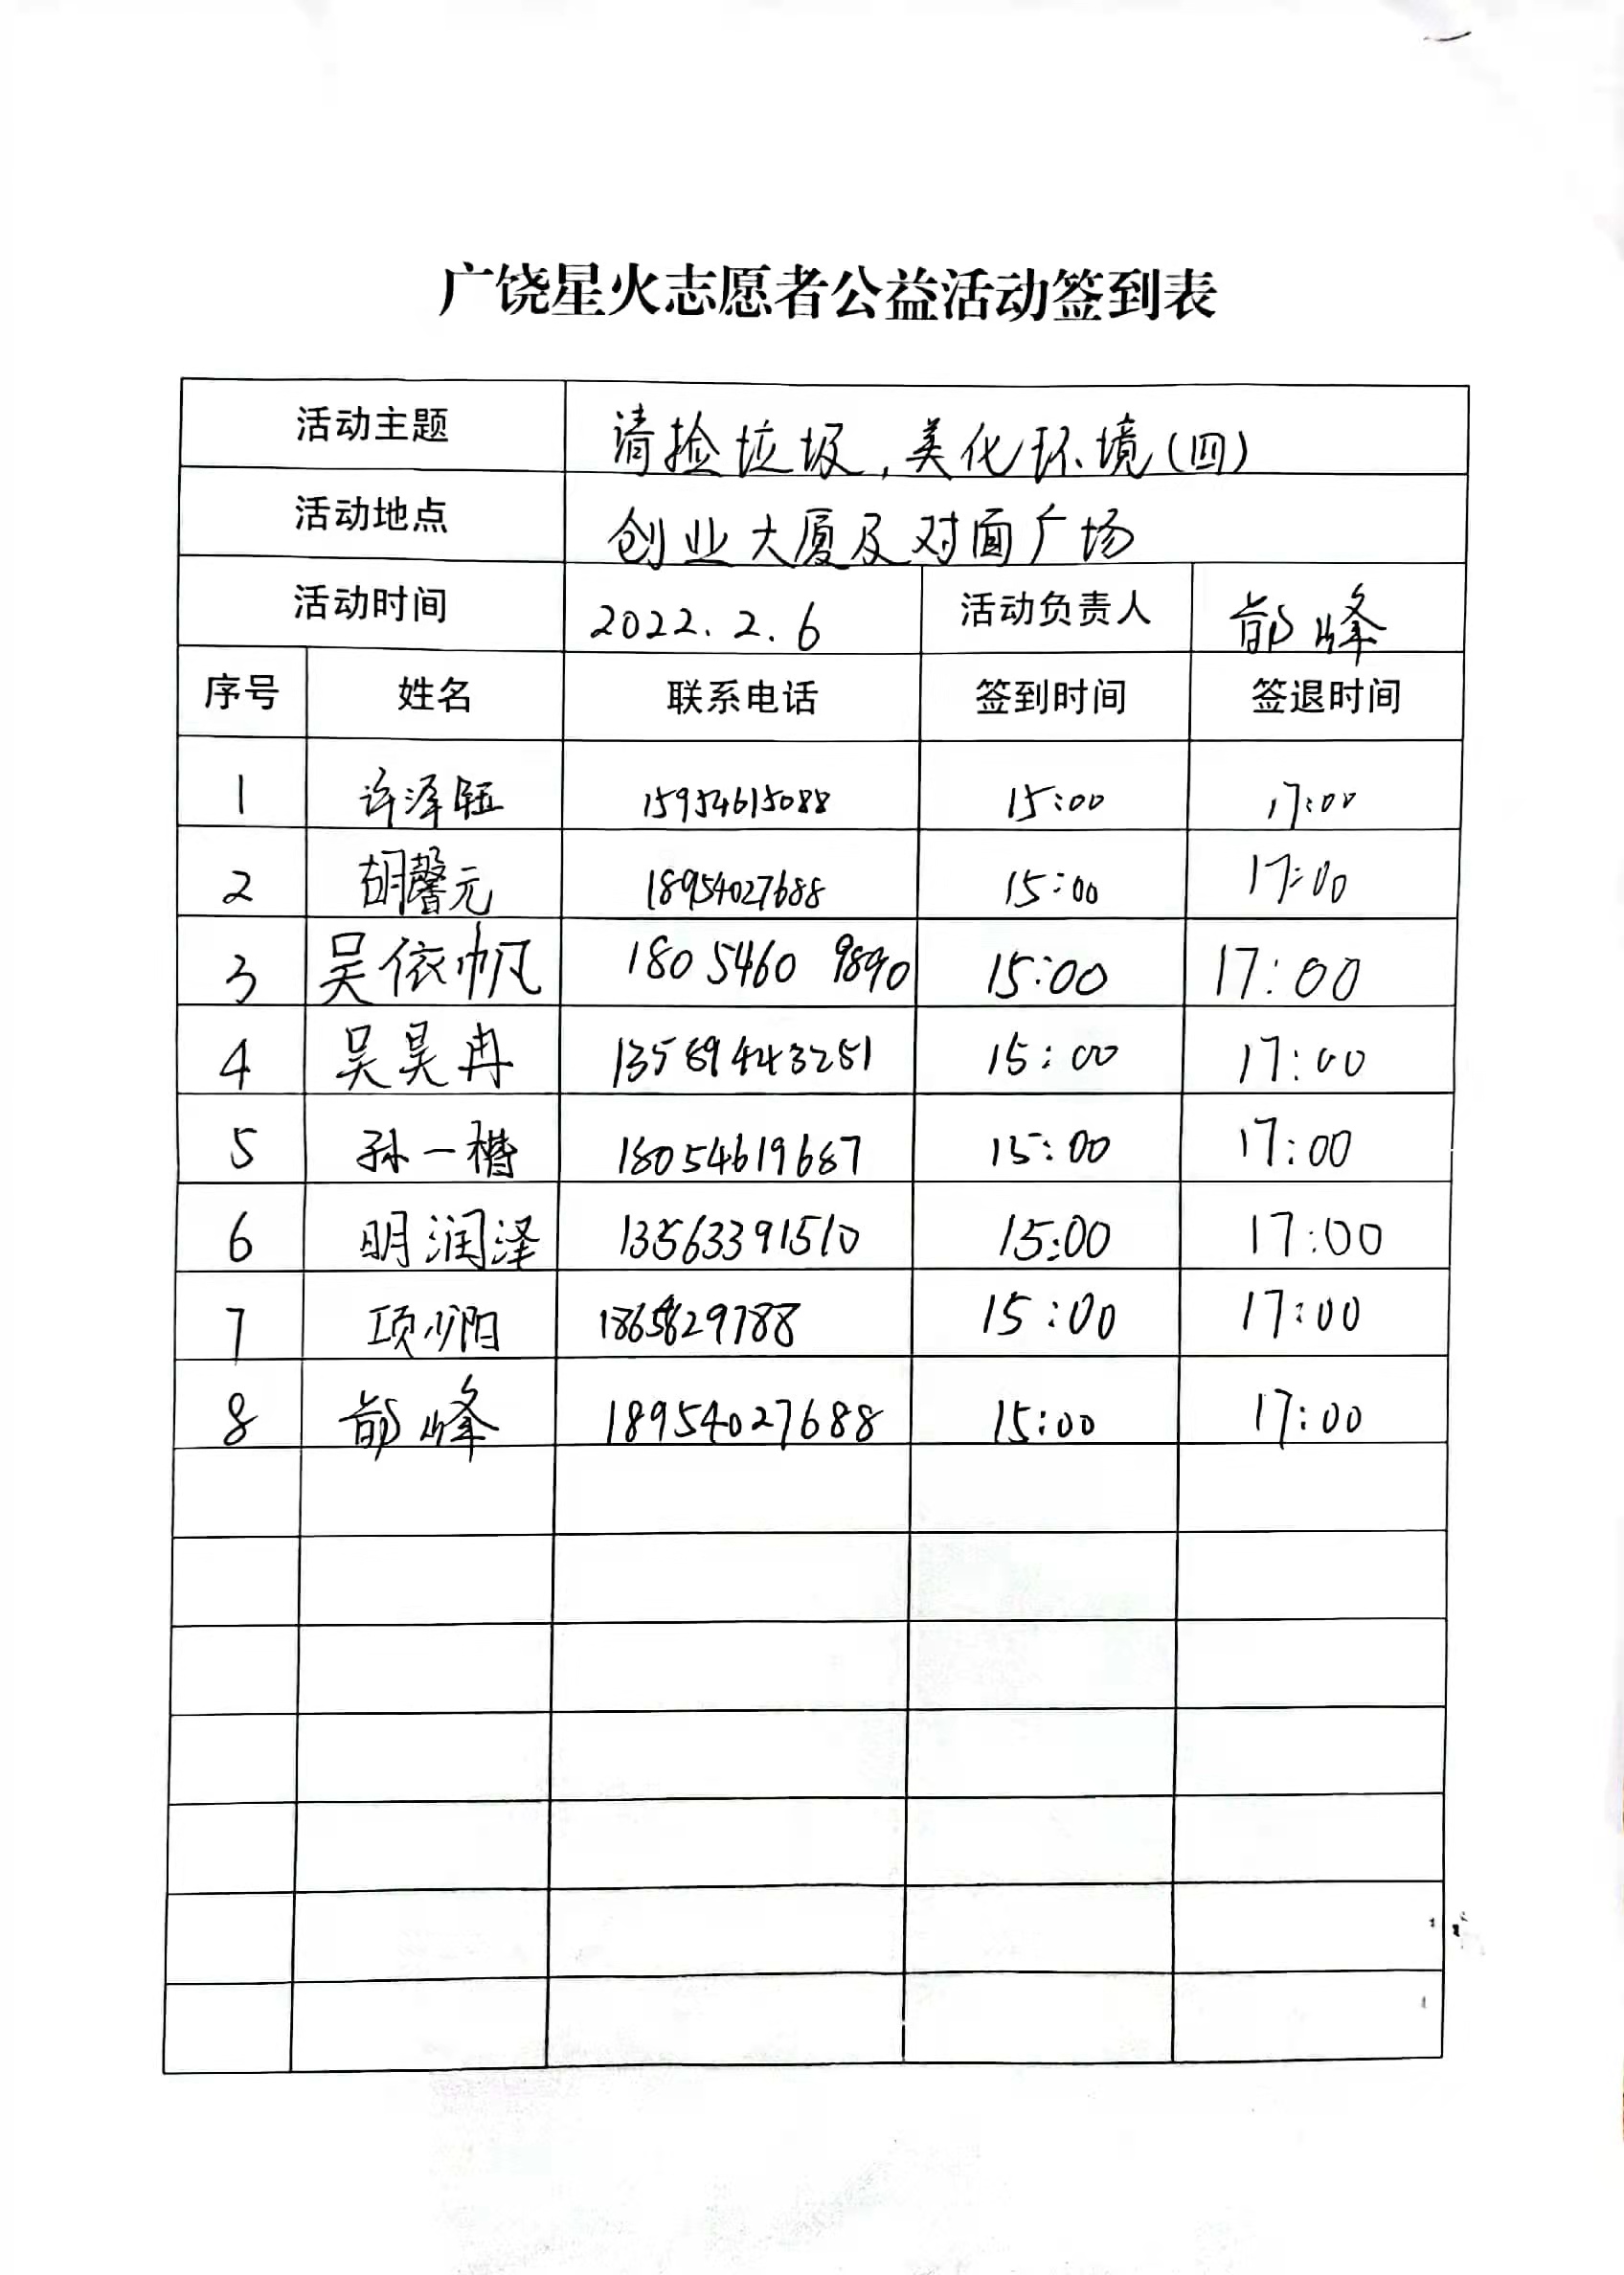 广饶星火志愿者公益活动签到表
活动主题 清捡垃圾,美化环境(四)
活动地点 创业大厦及对面广场
活动时间 2022.2.6 活动负责人 郇峰
序号 姓名 联系电话 签到时间 签退时间
1 许泽钰 15954615088 15:00 17:00
2 胡馨元 18954027688 15:00 17:00
3 吴依帆 180 5460 9890 15:00 17:00
4 吴昊冉 13589443251 15:00 17:00
5 孙一楷 18054619687 15:00 17:00
6 明润泽 13563391510 15:00 17:00
7 项少阳 15:00 17:00
8 郇峰 18954027688 15:00 17:00